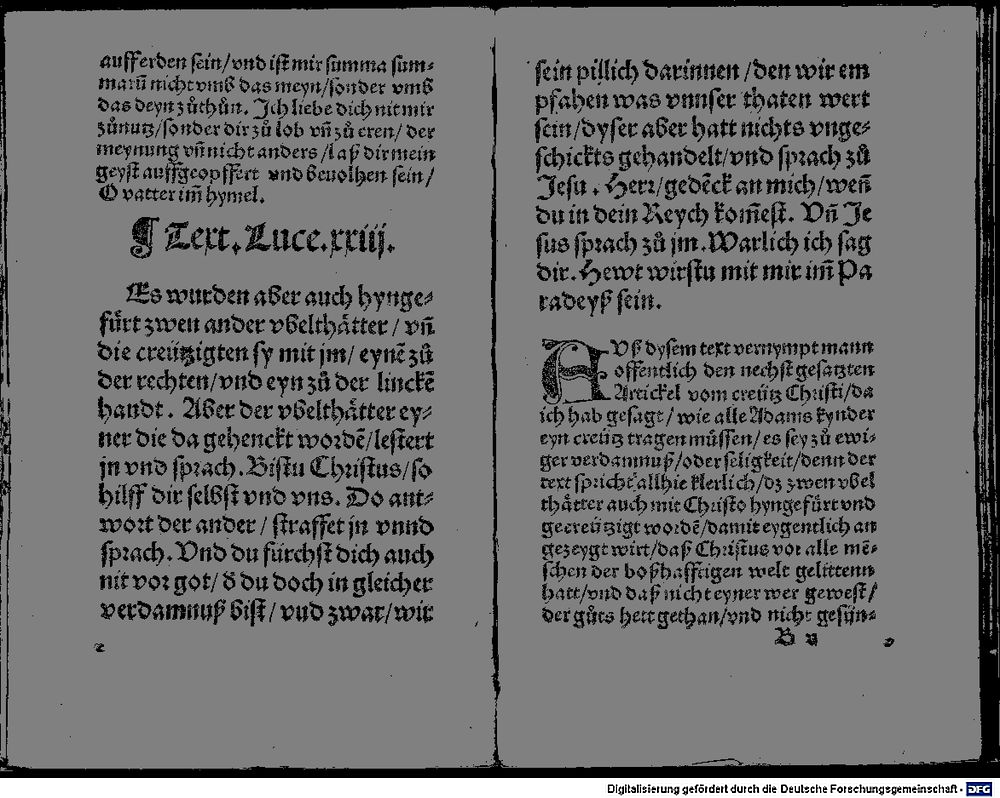 aufferden sein/vnd ist mir summa sum⸗
marū nicht vmb das meyn/sonder vmb
das deyn zůthůn. Ich liebe dich nit mir
zůnutz/sonder dir zů lob vñ zů eren/ der
meynung vñ nicht anders/laß dir mein
geyst auffgeopffert vnd beuolhen sein/
O vatter im̄ hymel.
¶ Text. Luce. xxiij.
Es wurden aber auch hynge⸗
fürt zwen ander vbelthätter/ vñ
die creützigten sy mit jm/ eynē zů
der rechten/vnd eyn zů der linckē
handt. Aber der vbelthätter ey⸗
ner die da gehenckt wordē/lestert
jn vnd sprach. Bistu Christus/so
hilff dir selbst vnd vns. Do ant⸗
wort der ander/ straffet jn vnnd
sprach. Vnd du fürchst dich auch
nit vor got/ d̕ du doch in gleicher
verdamnuß bist/ vud zwar/wir
sein pillich darinnen/den wir em
pfahen was vnnser thaten wert
sein/dyser aber hatt nichts vnge⸗
schickts gehandelt/vnd sprach zů
Jesu. Herr/gedēck an mich/wen̄
du in dein Reych kom̄est. Vñ Je
sus sprach zů jm. Warlich ich sag
dir. Hewt wirstu mit mir im̄ Pa
radeyß sein.
AVß dysem text vernympt mann
offentlich den nechst gesatzten
Artickel vom creütz Christi/da
ich hab gesagt/ wie alle Adams kynder
eyn creütz tragen müssen/ es sey zů ewi⸗
ger verdamnuß/oder seligkeit/denn der
text spricht allhie klerlich/dz zwen vbel
thätter auch mit Christo hyngefürt vnd
gecreützigt wordē/damit eygentlich an
gezeygt wirt/daß Christus vor alle mē⸗
schen der boßhafftigen welt gelittenn
hatt/vnd daß nicht eyner wer gewest/
der gůts hett gethan/vnd nicht gesün⸗
B ij
Digitalisierung gefördert durch die Deutsche Forschungsgemeinschaft - DFG